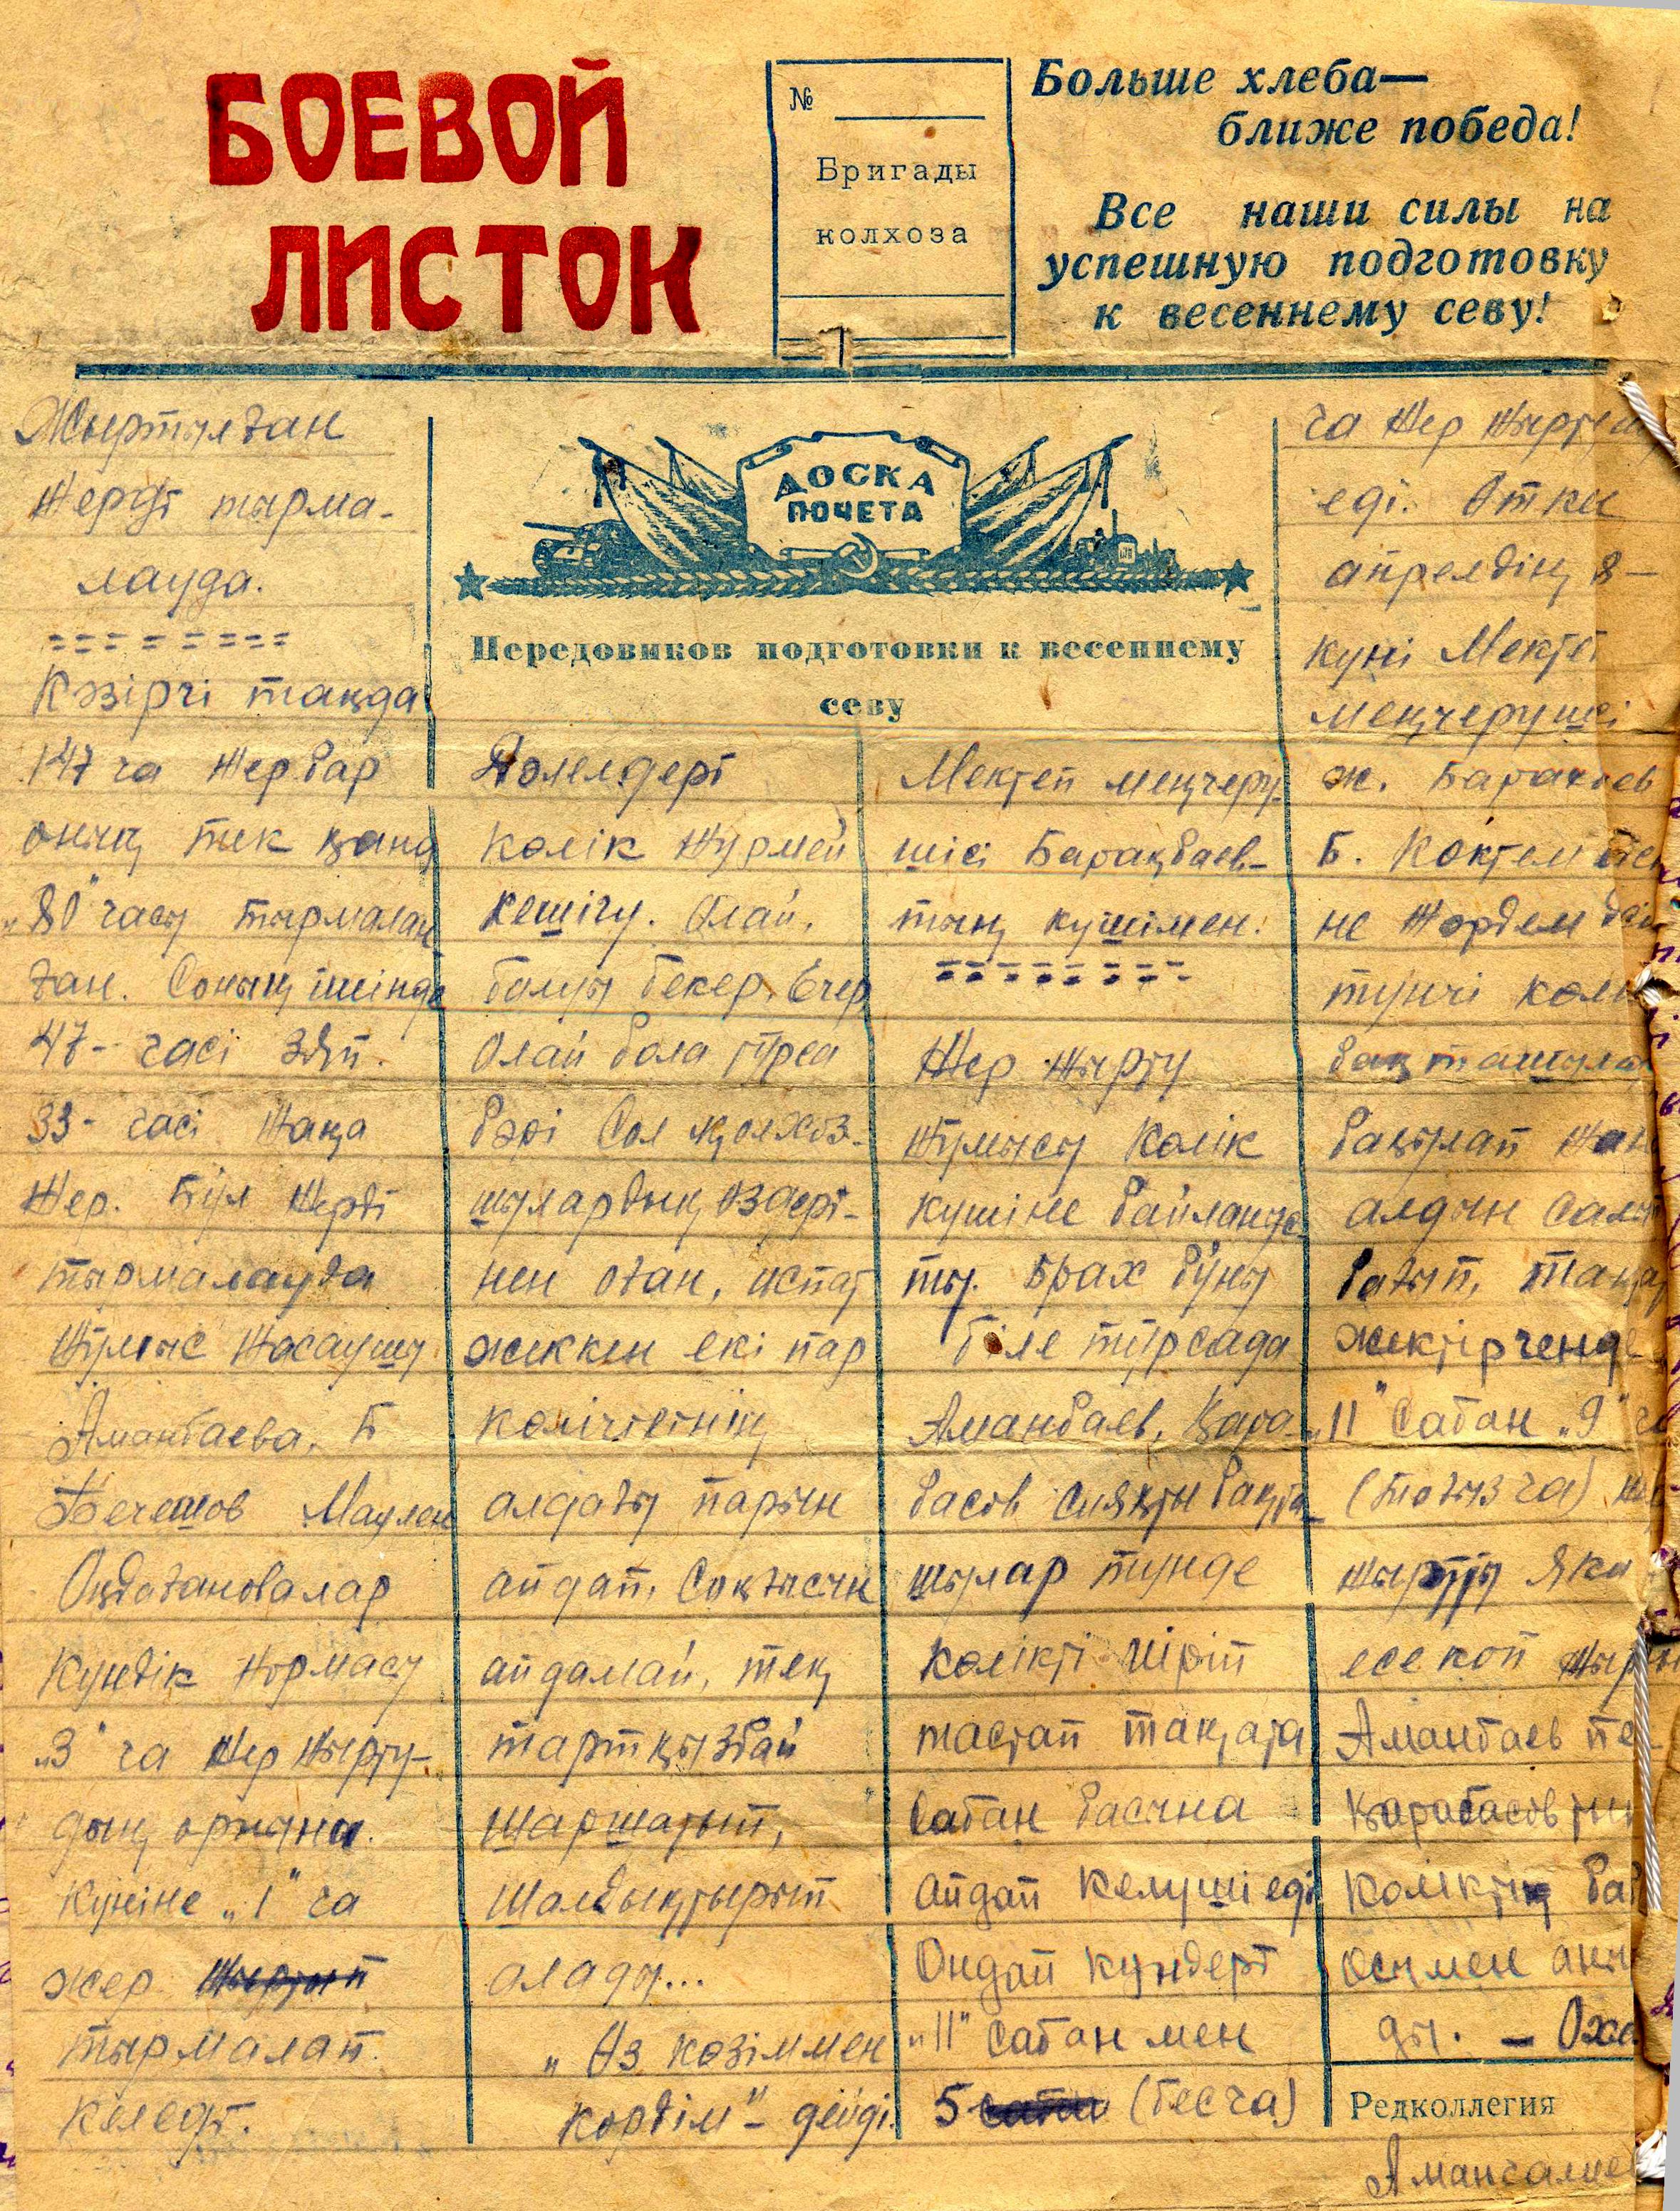 БОЕВОЙ
ЛИСТОК
№
Бригады
колхоза
Больше хлеба—
ближе победа!
Все наши силы на
успешную подготовку
к весеннему севу!
Жыртылған
жерді тырма-
лауда.
Кәзіргі таңда
147 га жер бар
оның тек қана
„80" гасы тырмалан
ған. Соның ішінде
47- гасі зяп.
33- гасі жаңа
жер. Бұл жерді
тырмалауда
жұмыс жасаушы
Аманбаева, Б
Бегешов Маулен
Оңдағановалар
Күндік нормасы
„3" га жер жырту-
дың орнына.
Күніне „1" га
жер
тырмалап
келеді.
ДОСКА
ПОЧЕТА
Передовиков подготовки к весеннему
севу
Дәлелдері
Көлік жүрмей
кешігу. Олай,
болуы бекер. Егер
Олай бола тұрса
бәрі Сол қолхоз-
шылардың өздері-
нен оған, испат
жеккен екі пар
көлігінің
алдағы парын
айдап, Соңғысын
айдамай, тең
тартқызбай
Шаршатып,
Шалдықтырып
алады...
„Өз көзіммен
көрдім"- дейді.
Мектеп меңгеру-
шісі Барақбаев-
тың күшімен.
Жер жырту
жұмысы Көлік
күшіне байланыс-
ты. Брах бұны
біле тұрсада
Аманбаев, Қара-
басов сияқты бақта-
шылар түнде
Көлікті иіріп
тастап таңата
Сабан басына
айдап келуші еді
Ондай күндері
„11" сабан мен
5 (бес га)
га жер
еді. Өткен
апрелдің 8-
күні
меңгерушісі
ж.
Б. Көктем
не жәрдем
түнгі
бақташыла
бақылап
алдын
бағып,
жектіргенде
„11" Сабан „9"
(тоғыз га)
жыртты Яки
есе көп
Аманбаев
Қарабасовтың
Көліктің
осымен
ды. -
Редколлегия